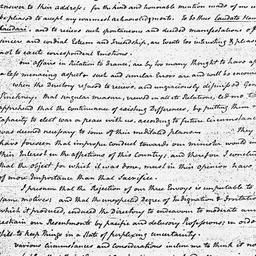 answer to their address: for the kind and honorable mention made of me in
be pleased to accept my warmest acknowledgments. To be thus laudato
laudari: and to receive such spontaneous and decided manifestations of
sincere and cordial Esteem and Friendship, are Events too interesting & pleasing
not to excite correspondent Emotions.
our affairs in Relation to France, are by too many thought to have a
less menacing aspect: such and similar Errors are and will be encoura
when the directory refused to receive, and ungraciously dismissed Gen
Pinckney; that singular measure, viewed in all its Relations, led me to
apprehend that the continuance of existing differences, by putting them
Capacity to elect war or peace with us, according to future circumstances
was deemed necessary to some of their meditated plans. They
have foreseen that improper conduct towards our minister would
their Interest in the affections of this Country; and therefore I conclude
that the object for which it was done, must in their opinion have
of more Importance than that Sacrifice.
I presume that the Rejection of our three Envoys is imputable to
same motives and that the unexpected Degree of Indignation & Irritation
which it produced, induced the Directory to endeavour to moderate and
restrain our Resentments by pacific and delusory Professions; in order
still to keep things in a State of perplexing uncertainty.
Various circumstances and considerations incline me to think it